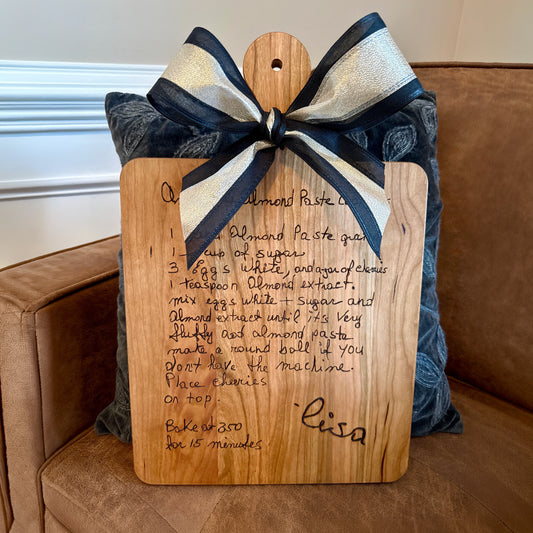 Almond Paste
1 Almond Paste
1 cup of sugar
3 Eggs white, and a jar of cherries
1 teaspoon Almond extract.
mix eggs white + sugar and
Almond extract until its Very
fluffy add almond paste
make a round ball if you
don't have the machine.
Place cheries
on top.
Bake at 350
for 15 minutes
lisa